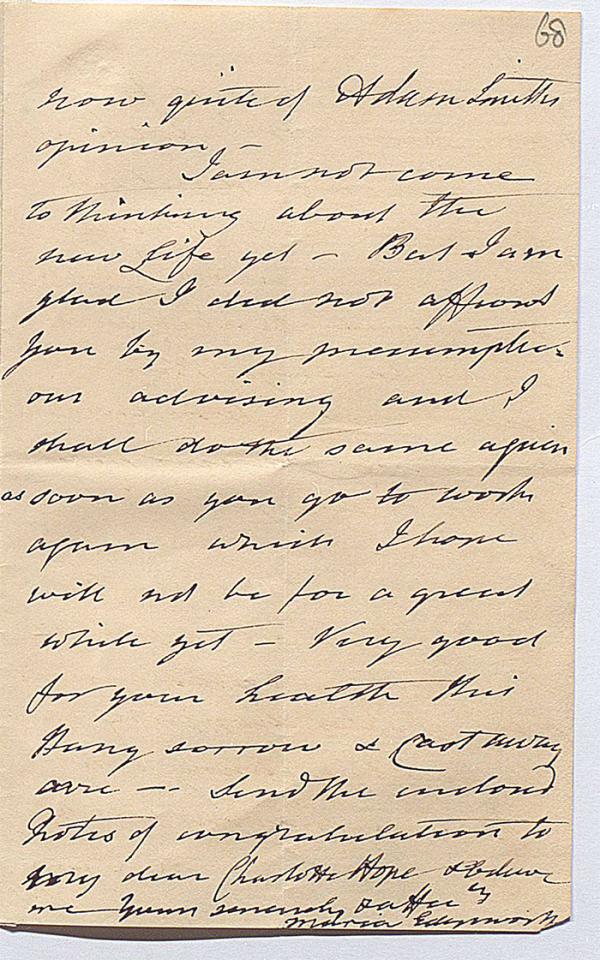 68
now quite of Adam Smiths
opinion —
I am not come
to thinking about the
new Life yet — But I am
glad I did not affront
you by my presumptu-
ous advising and I
shall do the same again
as soon as you go to work
again which I hope
will not be for a great
while yet — Very good
for your health this
Hang sorrow & Cast away
care — Send the inclosed
Notes of congratulation to
my dear Charlotte Hope & believe
me Yours sincerely & affecly
Maria Edgeworth